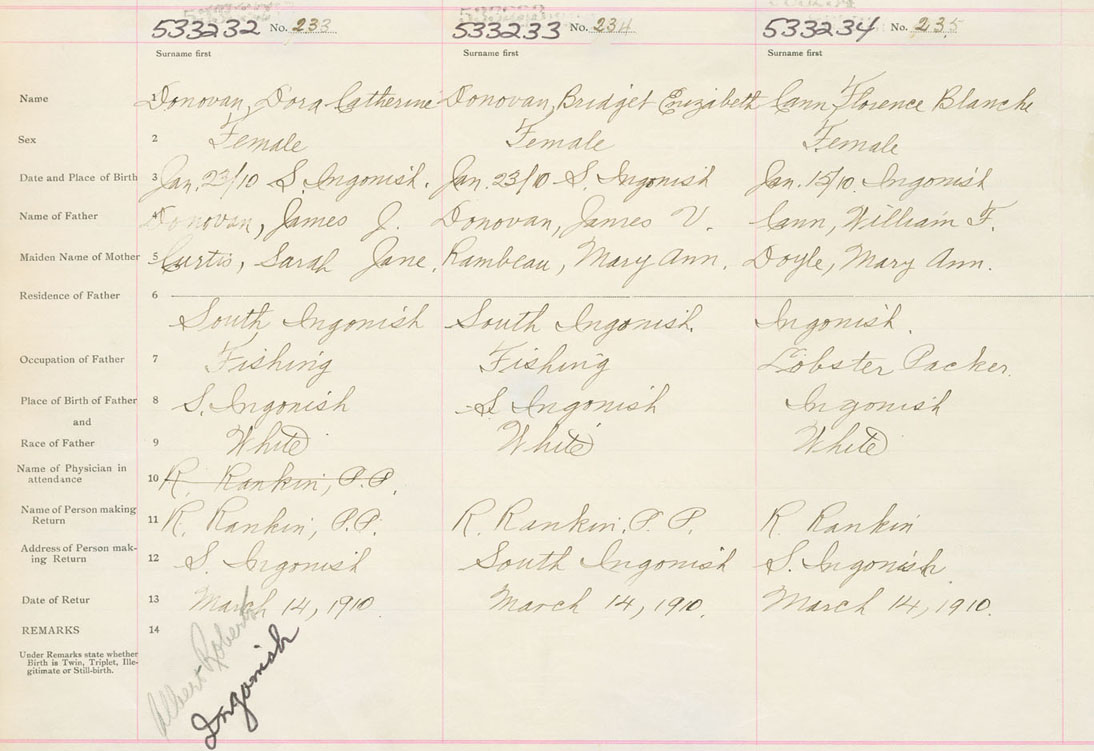 533232 No. 233 533233 No. 234 533234 No. 235
Surname first Surname first Surname first
Name 1 Donovan, Dora Catherine Donovan, Bridget Elizabeth Cann, Florence Blanche
Sex 2 Female Female Female
Date and Place of Birth 3 Jan. 23/10 S. Ingonish. Jan. 23/10 S. Ingonish Jan. 15/10. Ingonish
Name of Father 4 Donovan, James J. Donovan, James V. Cann, William F.
Maiden Name of Mother 5 Curtis, Sarah Jane. Rambeau, Mary Ann. Doyle, Mary Ann.
Residence of Father 6
South Ingonish South Ingonish. Ingonish.
Occupation of Father 7 Fishing Fishing Lobster Packer.
Place of Birth of Father 8 S. Ingonish S Ingonish Ingonish
and
Race of Father 9 White White White
Name of Physician in
attendance 10 R. Rankin, P.P.
Name of Person making
Return 11 R. Rankin, P.P. R. Rankin. P. P. R. Rankin
Address of Person mak-
ing Return 12 S. Ingonish South Ingonish S. Ingonish
Date of Retur 13 March 14, 1910 March 14, 1910. March 14, 1910.
REMARKS 14
Under Remarks state whether
Birth is Twin, Triplet, Ille-
gitimate or Still-birth.
Albert Roberts
Ingonish